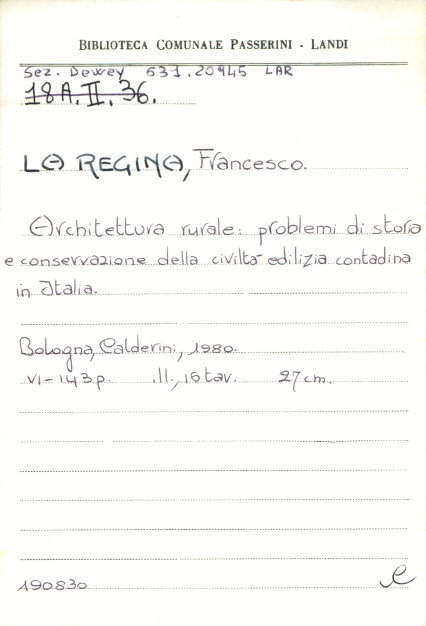 BIBLIOTECA COMUNALE PASSERINI - LANDI
Sez. Dewey 631.20945 LAR
18A.II.36.
LA REGINA, Francesco.
Architettura rurale: problemi di storia
e conservazione della civiltà edilizia contadina
in Italia.
Bologna, Calderini, 1980.
VI-143 p. ill., 16 tav. 27 cm.
190830